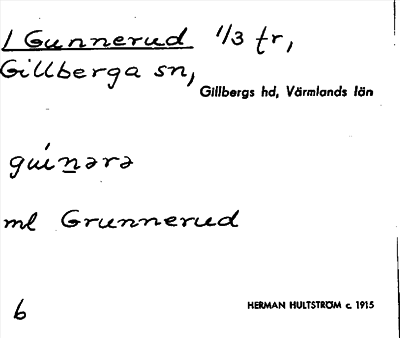 / Gunnerud 1/3 tr,
Gillberga sn,
Gillbergs hd, Värmlands län
ml Grunnerud
6
HERMAN HULTSTRÖM c. 1915